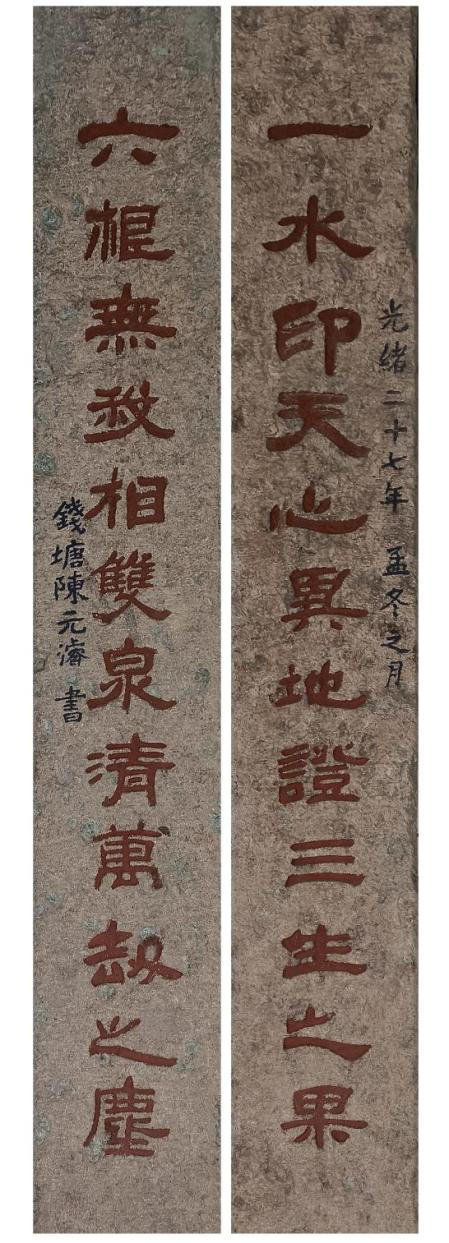 光緒二十七年 孟冬之月
一水印天心異地證三生之果
六根無我相雙泉清萬劫之塵
錢塘陳元濬書